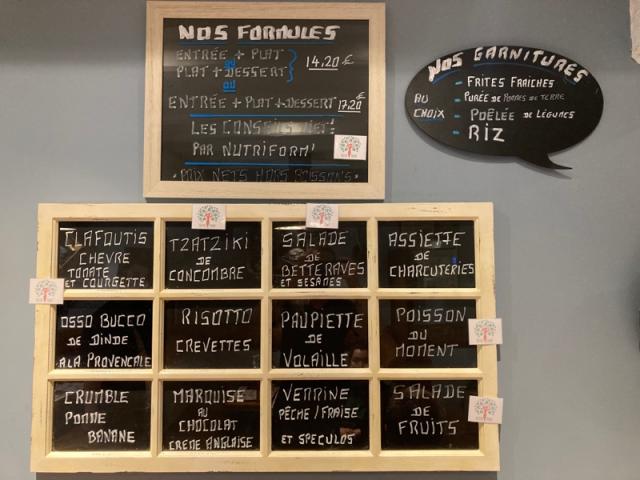 NOS FORMULES
ENTRÉE + PLAT
ou
PLAT + DESSERT
14,20 €
ou
ENTRÉE + PLAT + DESSERT 17,20 €
LES CONSEILS
PAR NUTRIFORM'
PRIX NETS HORS BOISSONS
NOS GARNITURES
AU
CHOIX
- FRITES FRAICHES
- PURÉE DE POMMES DE TERRE
- POÊLÉE DE LÉGUMES
- RIZ
CLAFOUTIS
CHEVRE
TOMATE
ET COURGETTE
TZATZIKI
DE
CONCOMBRE
SALADE
DE
BETTERAVES
ET SESAMES
ASSIETTE
DE
CHARCUTERIES
OSSO BUCCO
DE DINDE
A LA PROVENCALE
RISOTTO
CREVETTES
PAUPIETTE
DE
VOLAILLE
POISSON
DU
MOMENT
CRUMBLE
POMME
BANANE
MARQUISE
AU
CHOCOLAT
CREME ANGLAISE
VERRINE
PÊCHE / FRAISE
ET SPECULOS
SALADE
DE
FRUITS